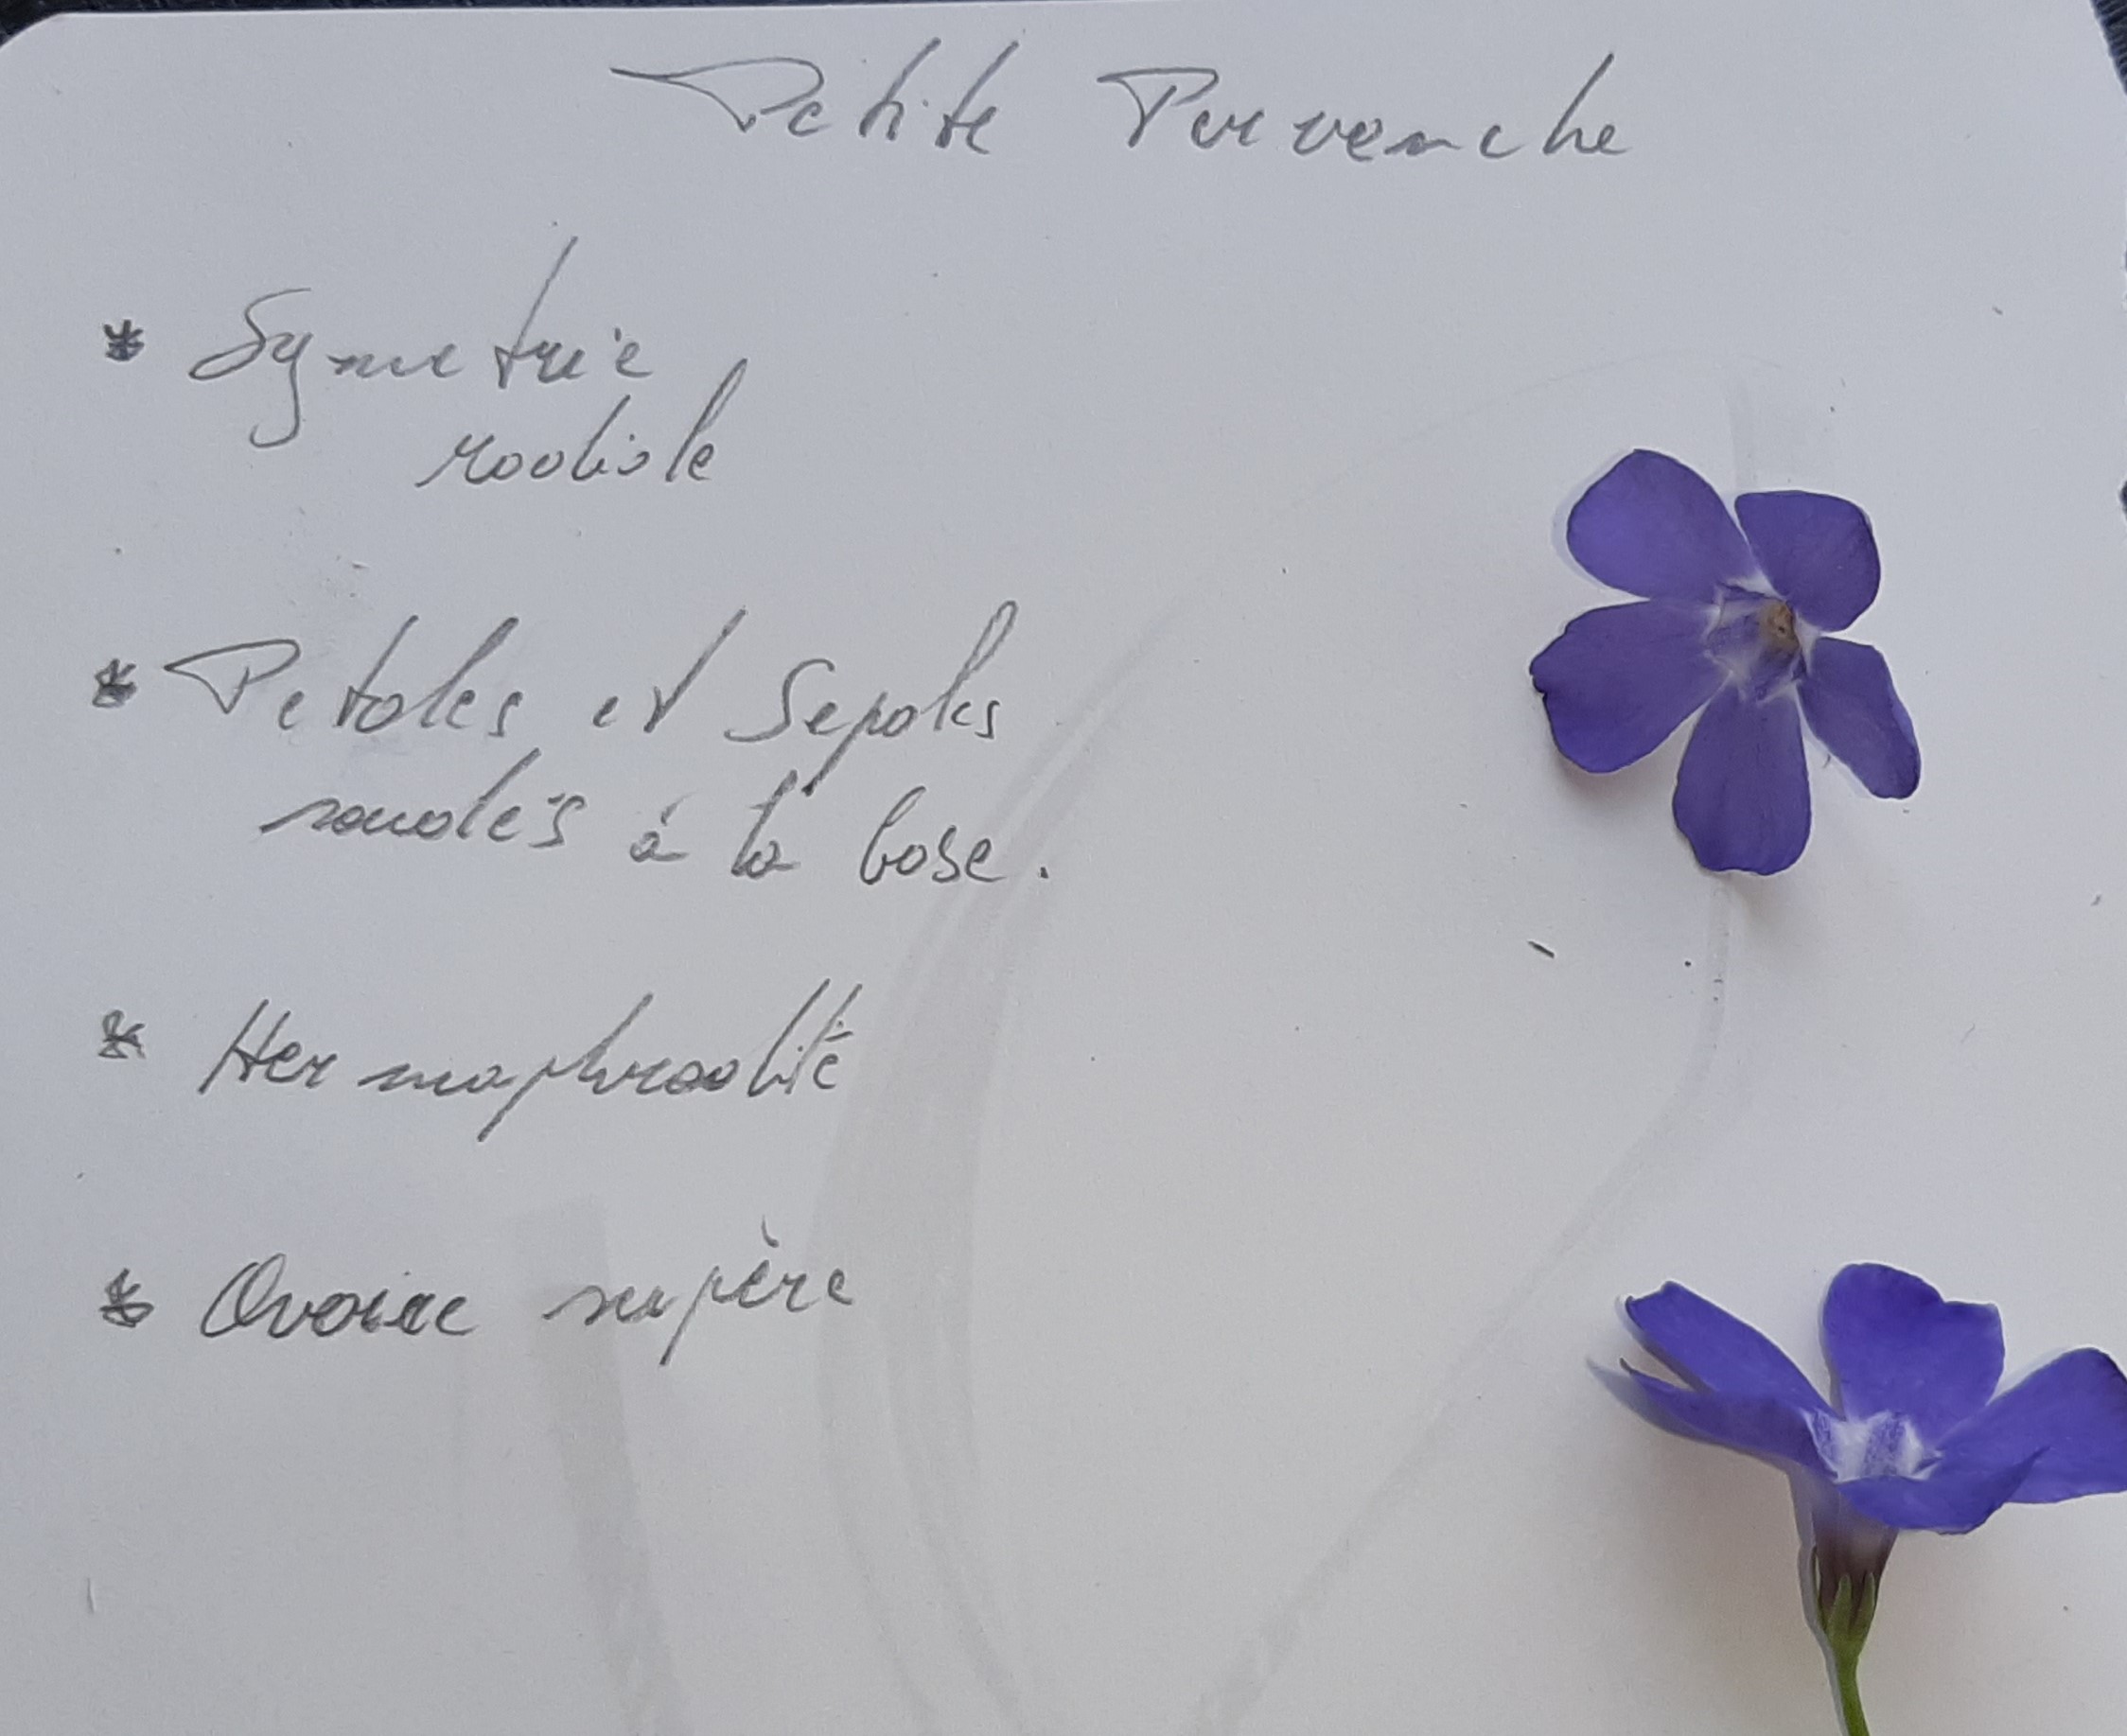 Petite Pervenche
* Symetrie
radiale
* Petales et Sepales
soudés à la base.
* Hermaphrodite
* Ovaire supère